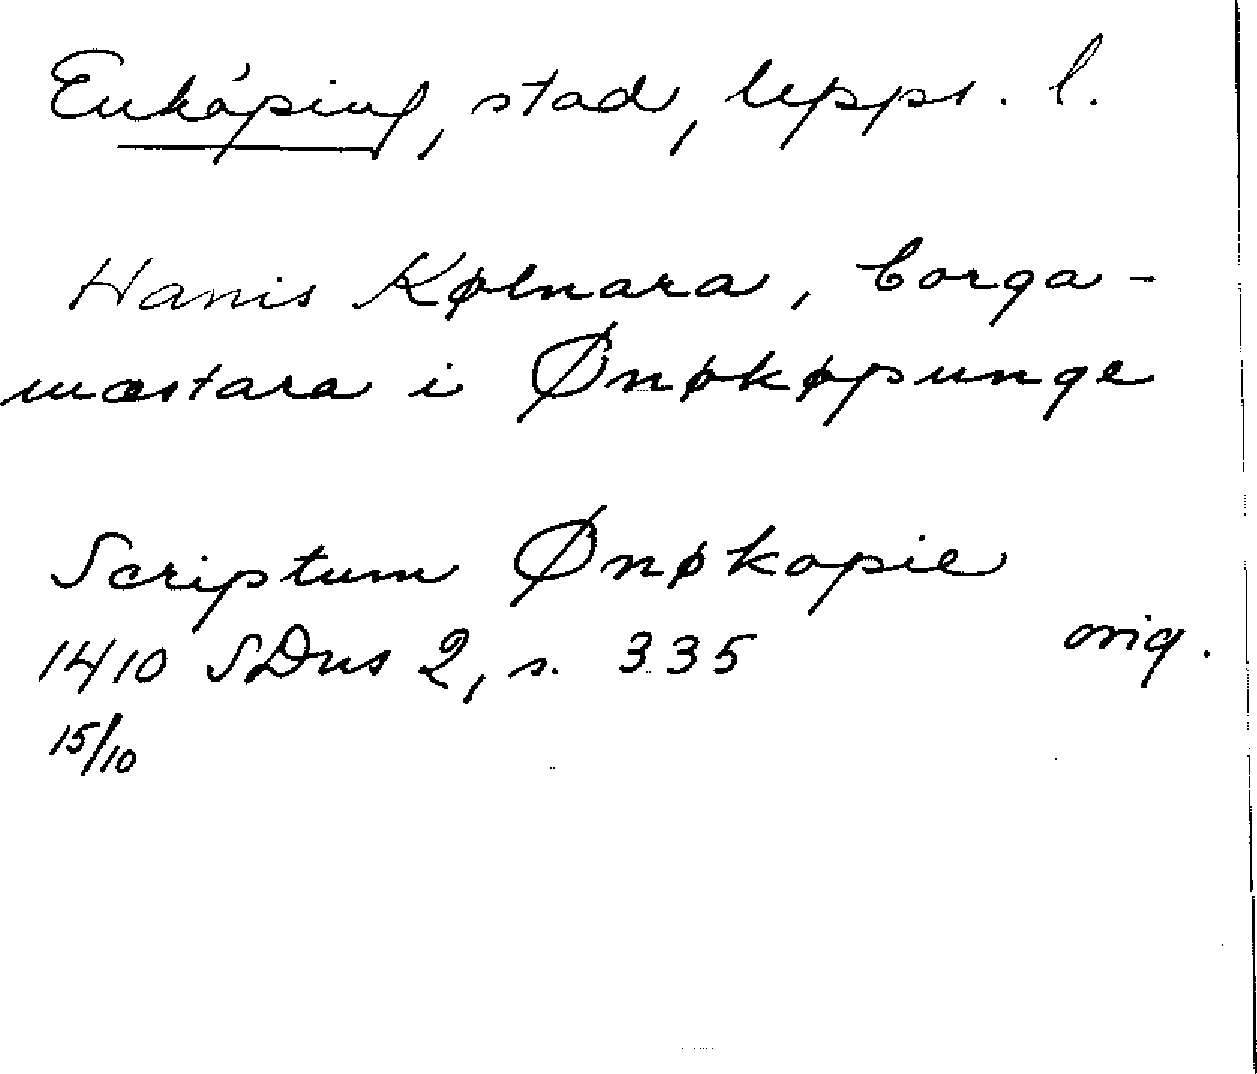 Enköping, stad, Upps. l.
Hanis Kølnara, borga-
mæstara i Ønøkøpunge
Scriptum Ønøkopie
1410 SDns 2, s. 335 orig.
15/10